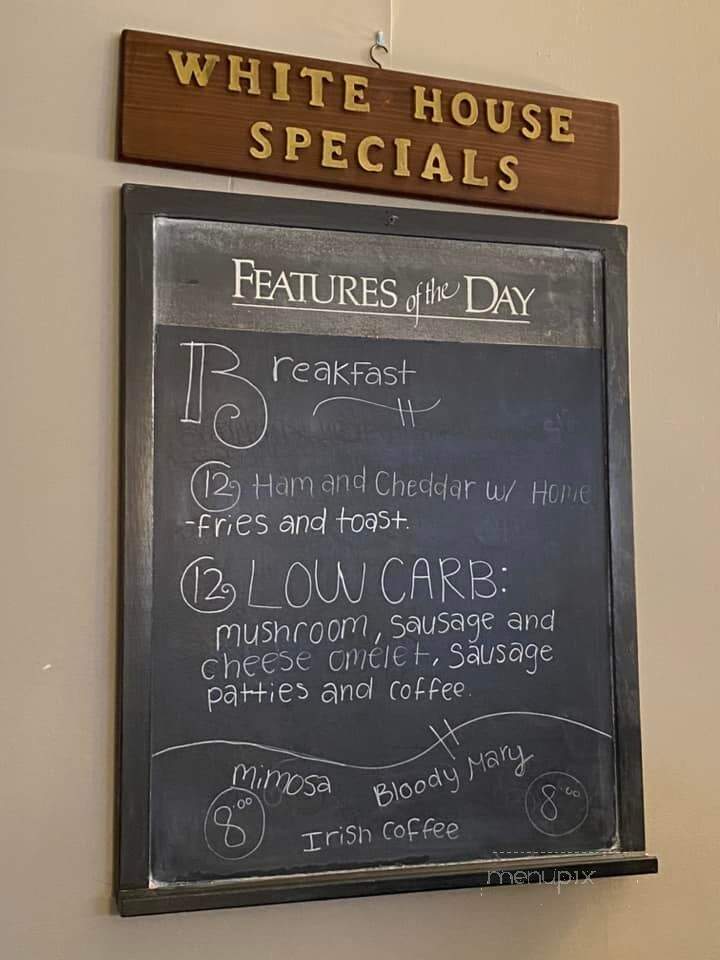 WHITE HOUSE
SPECIALS
FEATURES of the DAY
Breakfast
12 Ham and Cheddar w/ Home
-fries and toast.
12 LOW CARB:
mushroom, sausage and
cheese omelet, sausage
patties and coffee.
mimosa Bloody Mary
8.00 8.00
Irish coffee
menupix